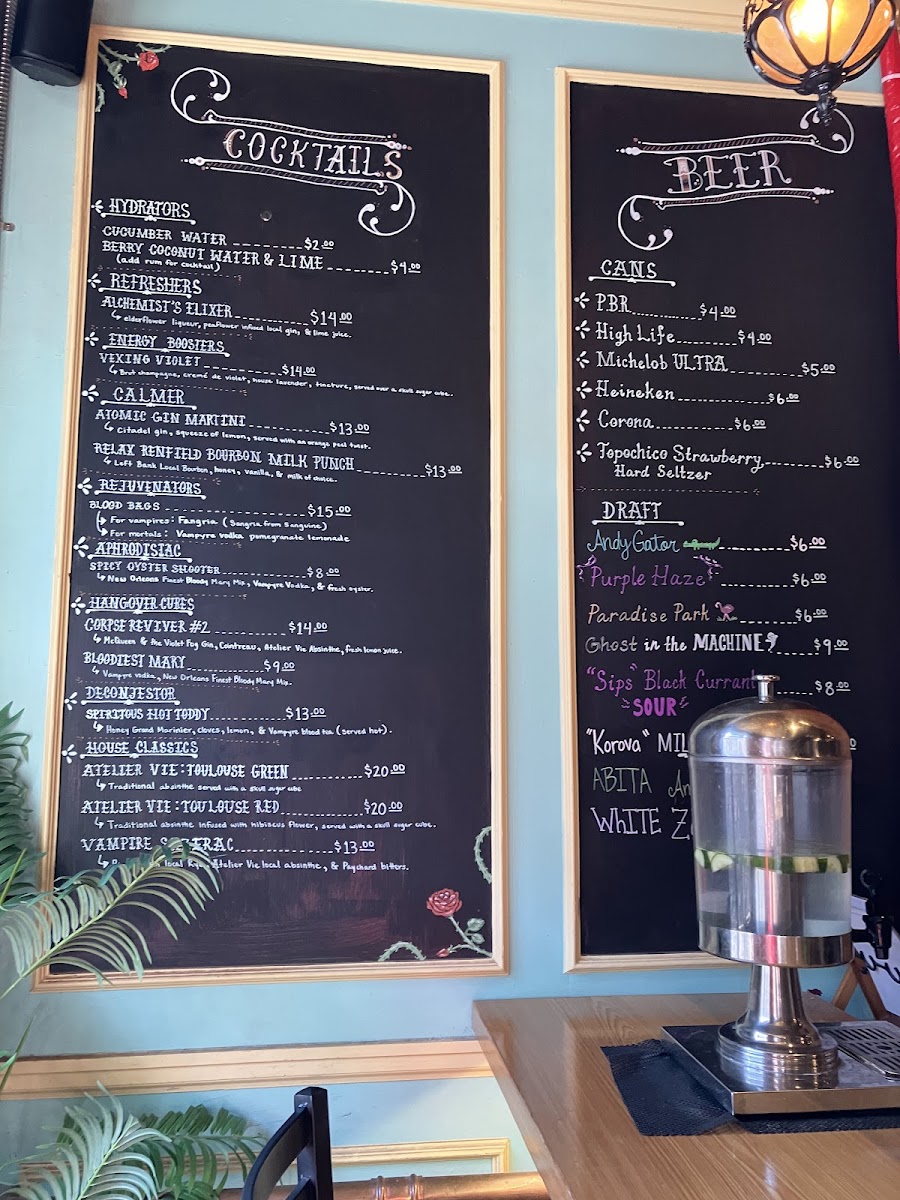 COCKTAILS
HYDRATORS
CUCUMBER WATER --------- $2.00
BERRY COCONUT WATER & LIME -------- $4.00
(add rum for cocktail)
REFRESHERS
ALCHEMIST'S ELIXER ---------- $14.00
elderflower liqueur, peaflower infused local gin, & lime juice.
ENERGY BOOSTERS
VEXING VIOLET ---------- $14.00
Brut champagne, cremé de violet, house lavender, tincture, served over a skull sugar cube.
CALMER
ATOMIC GIN MARTINI ---------- $13.00
Citadel gin, squeeze of lemon, served with an orange peel twist.
RELAX RENFIELD BOURBON MILK PUNCH --------- $13.00
Loft Bank Local Bourbon, honey, vanilla, & milk of choice.
REJUVENATORS
BLOOD BAGS ----------------- $15.00
For vampires: Fangria (Sangria from Sanguine)
For mortals: Vampyre vodka pomegranate lemonade
APHRODISIAC
SPICY OYSTER SHOOTER --------- $8.00
New Orleans Finest Bloody Mary Mix, Vampyre Vodka, & fresh oyster.
HANGOVER CURES
CORPSE REVIVER #2 --------- $14.00
McQueen & the Violet Fog Gin, Cointreau, Atelier Vie Absinthe, fresh lemon juice.
BLOODIEST MARY --------- $9.00
Vampyre vodka, New Orleans Finest Bloody Mary Mix.
DECONJESTOR
SPIRITOUS HOT TODDY --------- $13.00
Honey Grand Marinier, cloves, lemon, & Vampyre blood tea (served hot).
HOUSE CLASSICS
ATELIER VIE: TOULOUSE GREEN --------- $20.00
Traditional absinthe served with a skull sugar cube
ATELIER VIE: TOULOUSE RED ---------- $20.00
Traditional absinthe infused with hibiscus flower, served with a skull sugar cube.
VAMPIRE --------------- $13.00
local Rye, Atelier Vie local absinthe, & Paychard bitters.
BEER
CANS
PBR --------- $4.00
High Life -------- $4.00
Michelob ULTRA --------- $5.00
Heineken ------------- $6.00
Corona ----------- $6.00
Topochico Strawberry -------- $6.00
Hard Seltzer
DRAFT
Andy Gator --------- $6.00
Purple Haze --------- $6.00
Paradise Park -------- $6.00
Ghost in the MACHINE ----- $9.00
"Sips" Black Currant ----- $8.00
SOUR
"Korova"
ABITA
WHITE